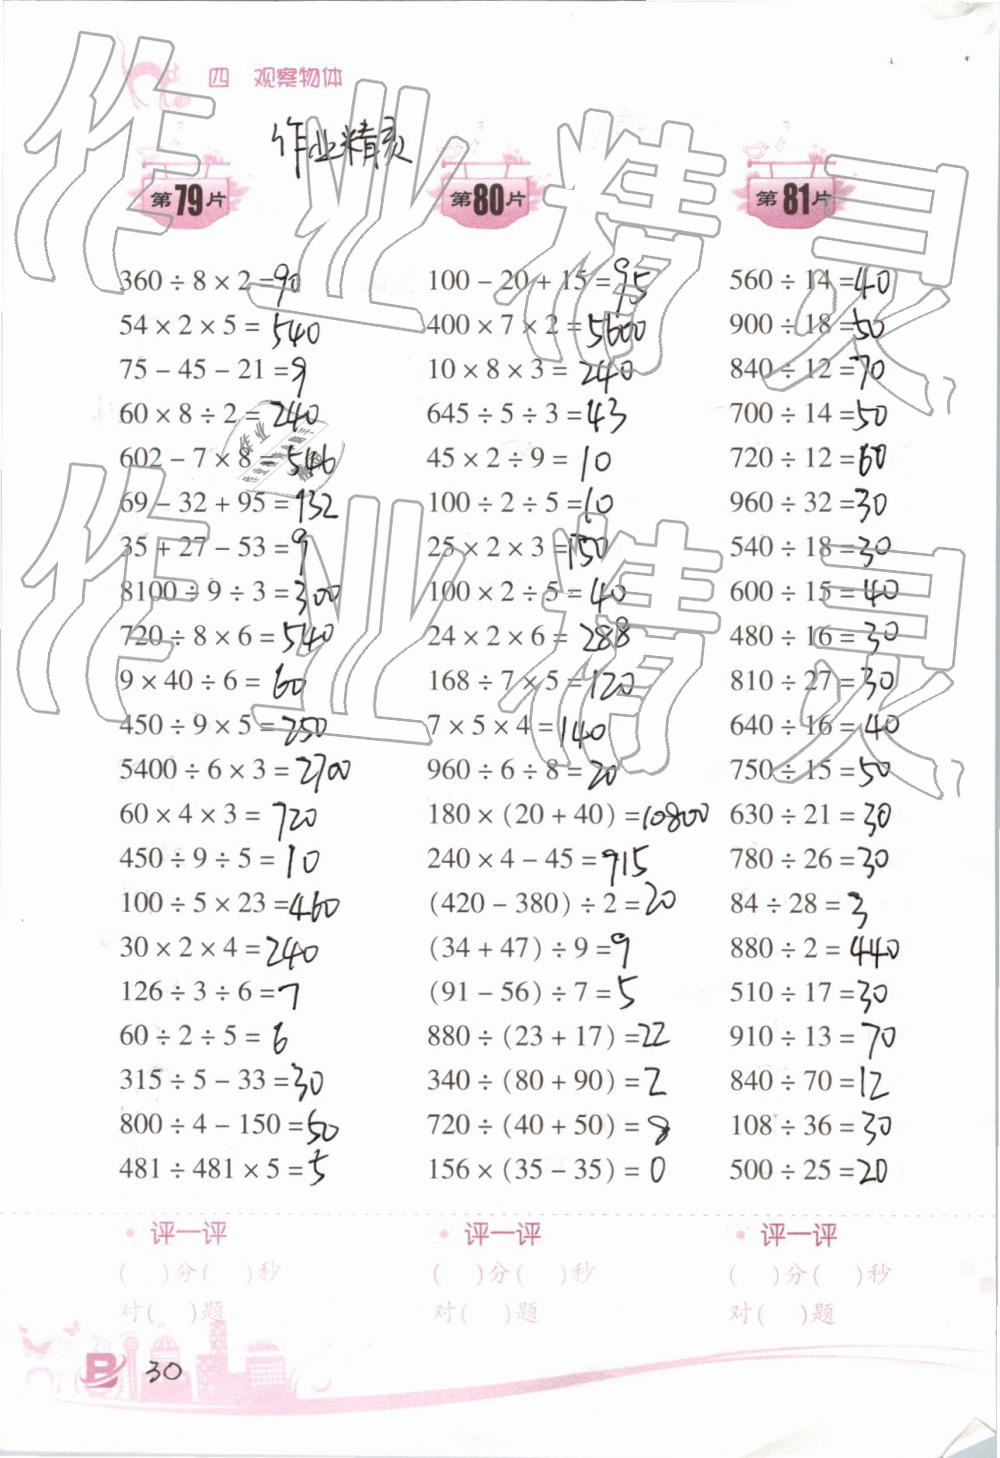 四 观察物体
作业精灵
第79片
360 ÷ 8 × 2 = 90
54 × 2 × 5 = 540
75 − 45 − 21 = 9
60 × 8 ÷ 2 = 240
602 − 7 × 8 = 546
69 − 32 + 95 = 132
35 + 27 − 53 = 9
8100 ÷ 9 ÷ 3 = 300
720 ÷ 8 × 6 = 540
9 × 40 ÷ 6 = 60
450 ÷ 9 × 5 = 250
5400 ÷ 6 × 3 = 2700
60 × 4 × 3 = 720
450 ÷ 9 ÷ 5 = 10
100 ÷ 5 × 23 = 460
30 × 2 × 4 = 240
126 ÷ 3 ÷ 6 = 7
60 ÷ 2 ÷ 5 = 6
315 ÷ 5 − 33 = 30
800 ÷ 4 − 150 = 50
481 ÷ 481 × 5 = 5
评一评
(  )分(  )秒
对(  )题
第80片
100 − 20 + 15 = 95
400 × 7 × 2 = 5600
10 × 8 × 3 = 240
645 ÷ 5 ÷ 3 = 43
45 × 2 ÷ 9 = 10
100 ÷ 2 ÷ 5 = 10
25 × 2 × 3 = 150
100 × 2 ÷ 5 = 40
24 × 2 × 6 = 288
168 ÷ 7 × 5 = 120
7 × 5 × 4 = 140
960 ÷ 6 ÷ 8 = 20
180 × (20 + 40) = 10800
240 × 4 − 45 = 915
(420 − 380) ÷ 2 = 20
(34 + 47) ÷ 9 = 9
(91 − 56) ÷ 7 = 5
880 ÷ (23 + 17) = 22
340 ÷ (80 + 90) = 2
720 ÷ (40 + 50) = 8
156 × (35 − 35) = 0
评一评
(  )分(  )秒
对(  )题
第81片
560 ÷ 14 = 40
900 ÷ 18 = 50
840 ÷ 12 = 70
700 ÷ 14 = 50
720 ÷ 12 = 60
960 ÷ 32 = 30
540 ÷ 18 = 30
600 ÷ 15 = 40
480 ÷ 16 = 30
810 ÷ 27 = 30
640 ÷ 16 = 40
750 ÷ 15 = 50
630 ÷ 21 = 30
780 ÷ 26 = 30
84 ÷ 28 = 3
880 ÷ 2 = 440
510 ÷ 17 = 30
910 ÷ 13 = 70
840 ÷ 70 = 12
108 ÷ 36 = 30
500 ÷ 25 = 20
评一评
(  )分(  )秒
对(  )题
B 30
作业精灵
作业精灵